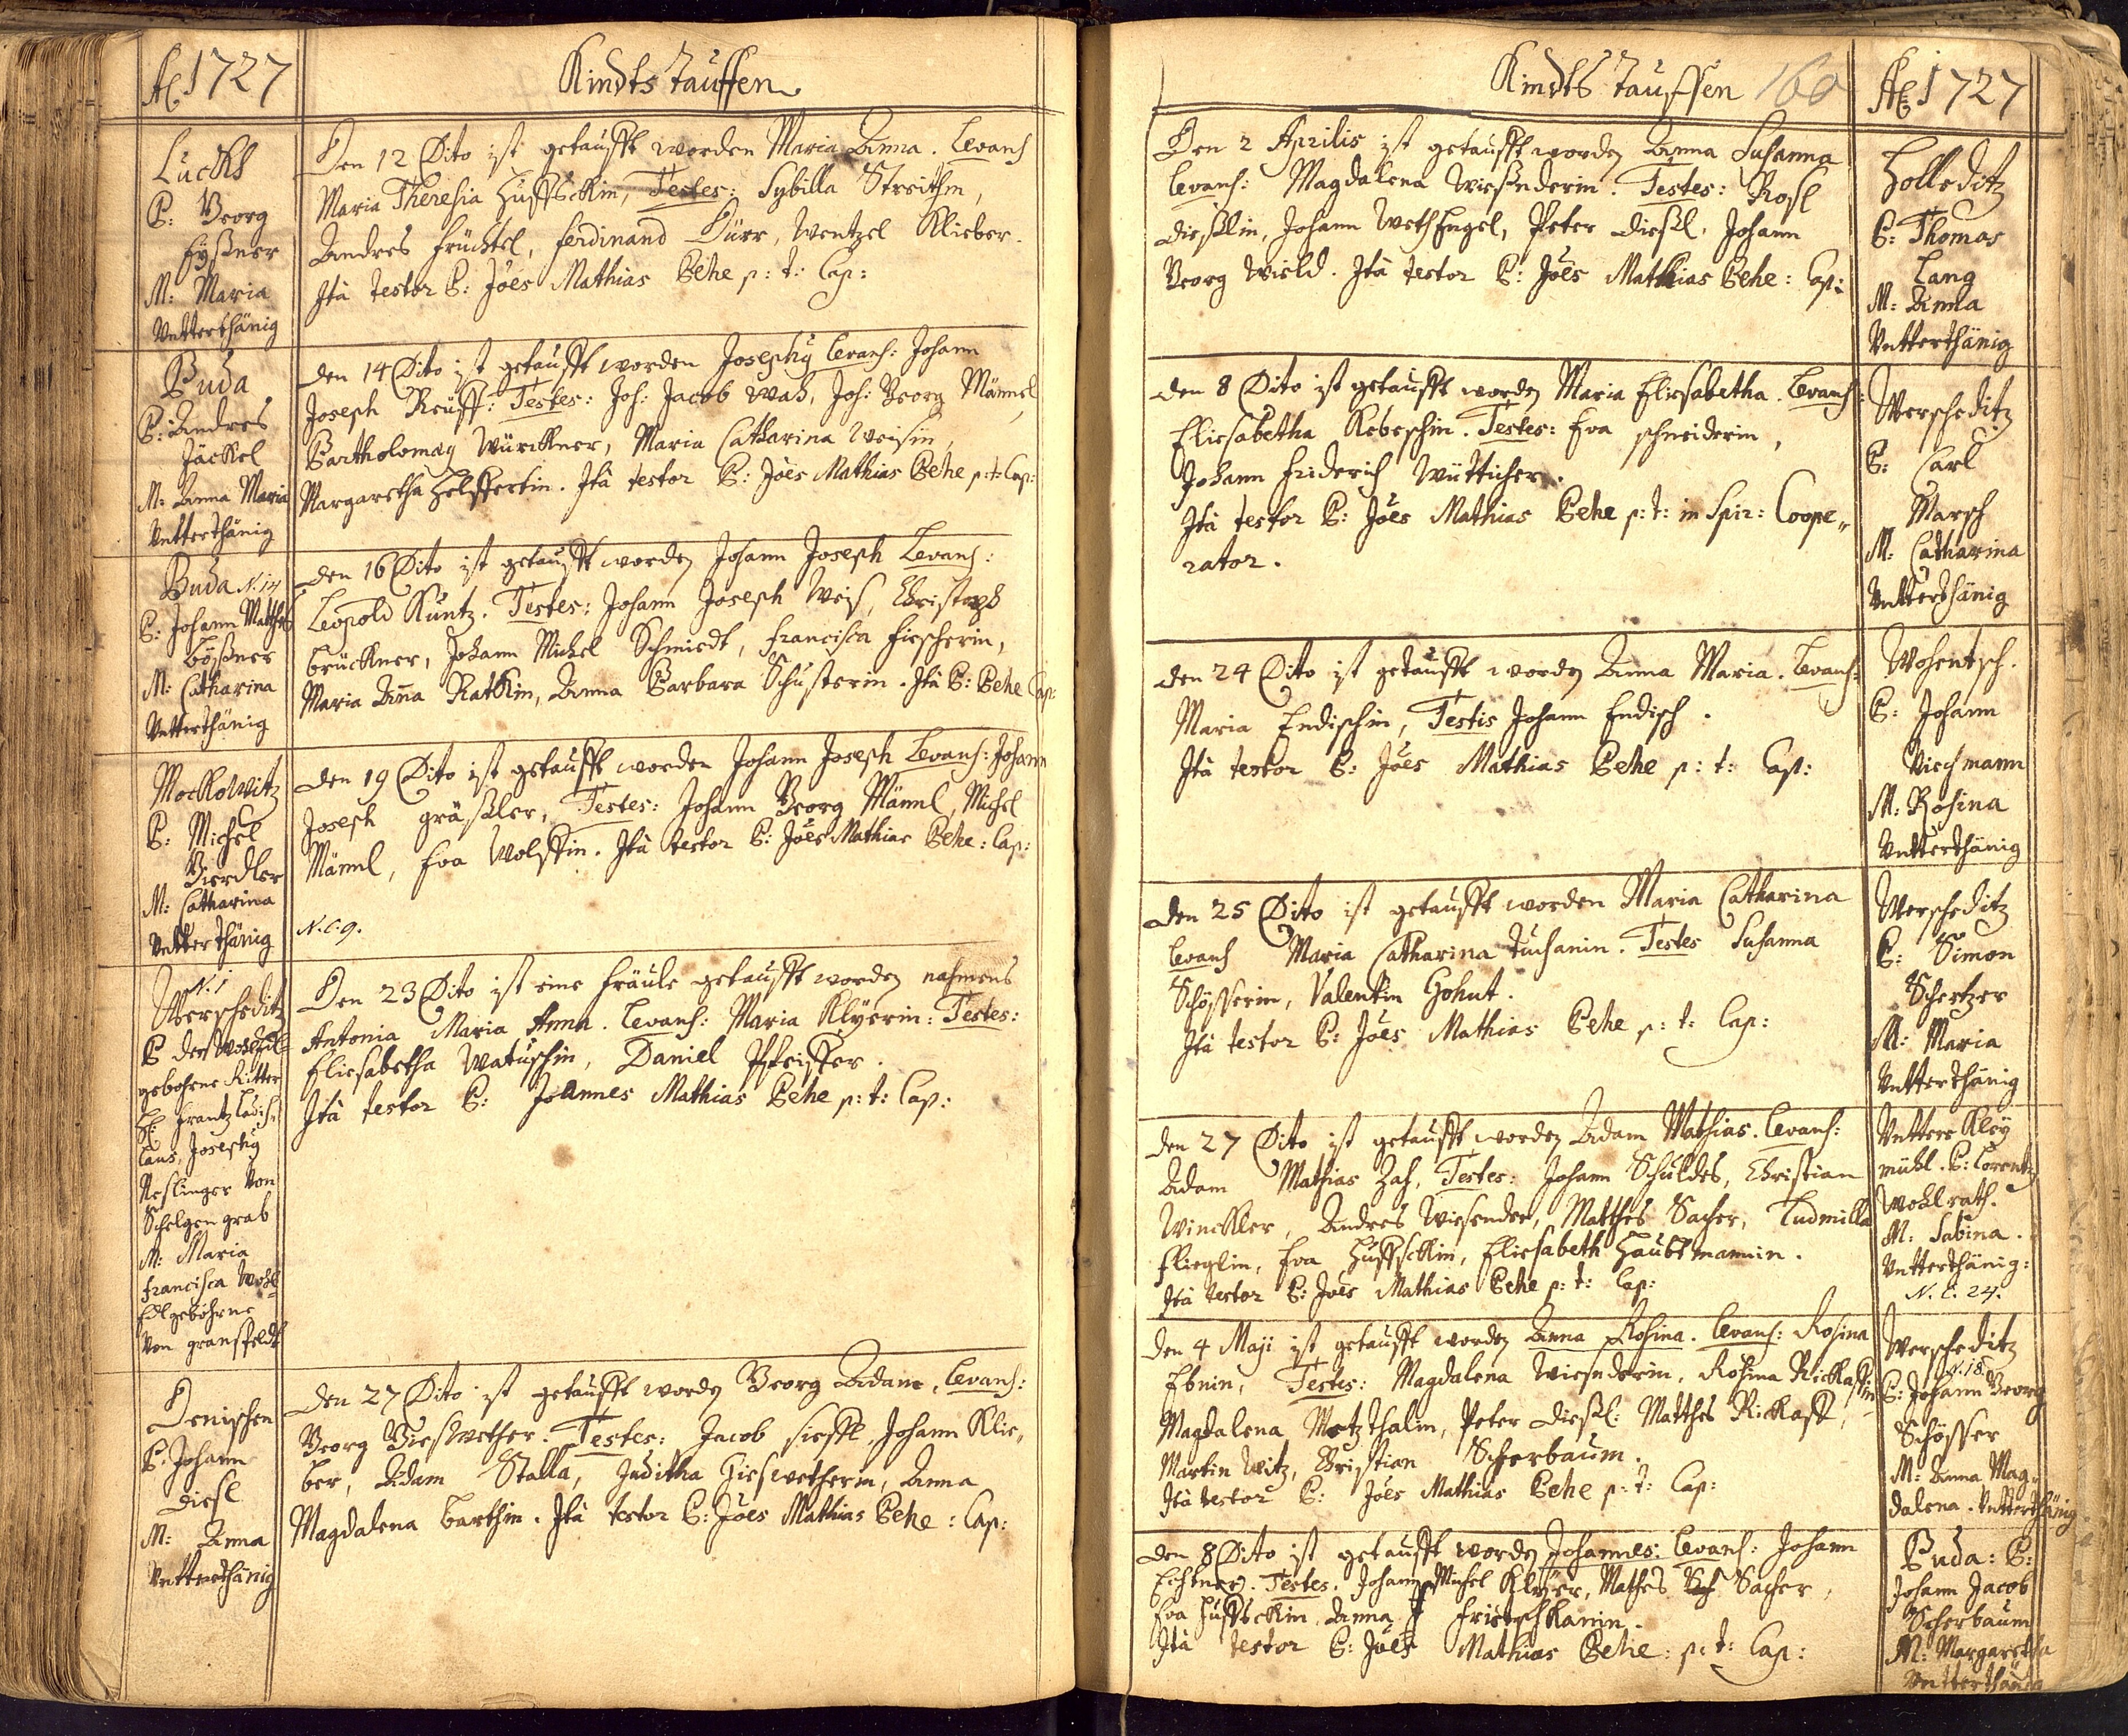 Aō 1727
Kindts Tauffen
Luckh
P: Georg
Eyßner
M: Maria
Untterthänig
Den 12 Dito ist getaufft worden Maria Anna. Levans
Maria Theresia Huffsckin, Testes: Sybilla
Andres Früchtel, Ferdinand Dürr, Wentzel Klieber.
Ità testor P: Joes Mathias Behe p: t: Cap:
Buda
P: Andres
Jäckel
M: Anna Maria
Untterthänig
Den 14 Dito ist getaufft worden Josephy Levans: Johann
Joseph Reüff: Testes: Joh: Jacob Wah, Joh: Georg Männel
Bartholomäy Würckner, Maria Catharina Weisin,
Margaretha Helffertin. Ità testor P: Joes Mathias Behe p: t: Cap:
Buda N. 14
P: Johann Matthes
Lößner
M: Catharina
Untterthänig
Den 16 Dito ist getaufft worden Johann Joseph Levans:
Leopold Kuntz. Testes: Johann Joseph Weis, Christoph
Brückner, Johann Michel Schmiedt, Francisca Fischerin,
Maria Anna Rathin, Anna Barbara Schusterin. Ità P: Behe Cap:
Mockowitz
P: Michel
Bierdler
M: Catharina
Untterthänig
Den 19 Dito ist getaufft worden Johann Joseph Levans: Johann
Joseph gräßler, Testes: Johann Georg Männl, Michel
Männl, Eva Wolffin. Ità testor P: Joes Mathias Behe: Cap:
N. C. 9.
N. 1
Werscheditz
P der Wohl
gebohrne Ritter
H: Frantz
laus, Josephy
Neslinger Von
Schelgengrab
M: Maria
Francisca Wohl
Edlgebohrne
Von gransfeldt
Den 23 Dito ist eine Fräule getaufft worden nahmens
Antonia Maria Anna. Levans: Maria Klyerin: Testes:
Eliesabetha Watuschin, Daniel Pfeiffer.
Ità testor P: Joannes Mathias Behe p: t: Cap:
Denischen
P: Johann
Diesl
M: Anna
Untterthänig
Den 27 Dito ist getaufft worden Georg Adam, Levans:
Georg Giesvether. Testes: Jacob Johann Klie,,
ber, Adam Stalla, Juditha Giesvetherin, Anna
Magdalena Barthin. Ità testor P: Joes Mathias Behe: Cap:
Kindts Tauffen 160
Aō 1727
Den 2 Aprilis ist getaufft worden Anna Susanna
Levans: Magdalena Wießnderin. Testes: Rosl
Dießlin, Johann Peter Dießl, Johann
Georg Wield. Ità testor P: Joes Mathias Behe: Cap:
Holleditz
P: Thomas
Lang
M: Anna
Untterthänig
Den 8 Dito ist getaufft worden Maria Eliesabetha. Levans:
Eliesabetha Rebeschin. Testes: Eva Schneiderin,
Johann Friderich Wütticher.
Ità testor P: Joes Mathias Behe p: t: in Spir: Coope,,
rator.
Werscheditz
P: Carl
Marsch
M: Catharina
Untterthänig
Den 24 Dito ist getaufft worden Anna Maria. Levans:
Maria Endischin, Testis Johann Endisch.
Ità testor P: Joes Mathias Behe p: t: Cap:
Wohentsch.
P: Johann
Viechmann
M: Rosina
Untterthänig
Den 25 Dito ist getaufft worden Maria Catharina
Levans Maria Catharina Tuchanin. Testes Susanna
Schösserin, Valentin Gohut.
Ità testor P: Joes Mathias Behe p: t: Cap:
Werscheditz
P: Simon
Schertzer
M: Maria
Untterthänig
Den 27 Dito ist getaufft worden Adam Mathias. Levans:
Adam Mathias Zah, Testes: Johann Schuldes, Christian
Winckler, Andres Wiesender, Matthes Sacher, Ludmilla
Flieglin, Eva Huffsckin, Eliesabeth Haubtmannin.
Ità testor P: Joes Mathias Behe p: t: Cap:
Unttere Kley
mühl. P: Lorentz
Wohlrath.
M: Sabina.
Untterthänig:
N. C. 24.
Den 4 Maji ist getaufft worden Anna Rosina. Levans: Rosina
Ebnin, Testes: Magdalena Wiesnderin, Rosina Rickaffin
Magdalena Metzthalin, Peter Dießl: Matthes Rickaff,
Martin Witz, Christian Scherbaum.
Ità testor P: Joes Mathias Behe p: t: Cap:
Werscheditz
N. 18
P: Johann Georg
Schösser
M: Anna Mag,,
dalena. Untterthänig
Den 8 Dito ist getaufft worden Johannes: Levans: Johann
Echtner. Testes. Johann Michel Klyer, Mathes Sacher,
Eva Huffsckin Anna Frietschkanin.
Ità testor P: Joes Mathias Behe: p: t: Cap:
Buda: P:
Johann Jacob
Scherbaum
M: Margaretha
Untterthänig